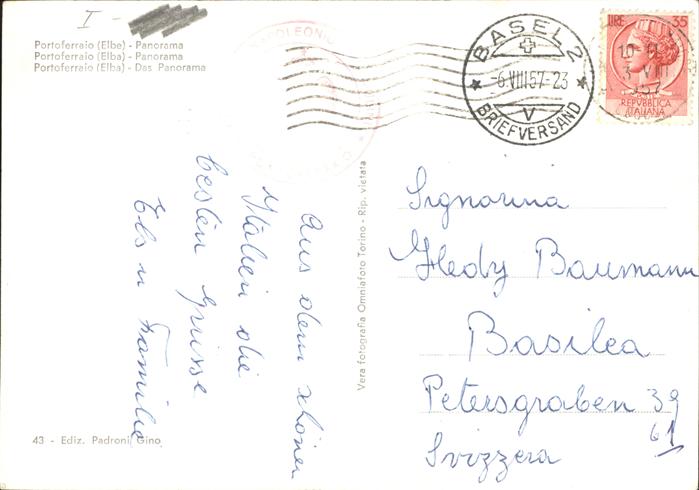 I -
Portoferraio (Elba) - Panorama
Portoferraio (Elbe) - Panorama
Portoferraio (Elba) - Das Panorama
BASEL 2
-6.VIII.57-23
V
BRIEFVERSAND
LIRE 35
REPVBBLICA
ITALIANA
Aus dem schönen
Italien die
besten Grüsse
Els u Familie
Vera fotografia Omniafoto Torino - Rip. vietata
Signorina
Hedy Baumann
Basilea
Petersgraben 39
61
Svizzera
43 - Ediz. Padroni Gino